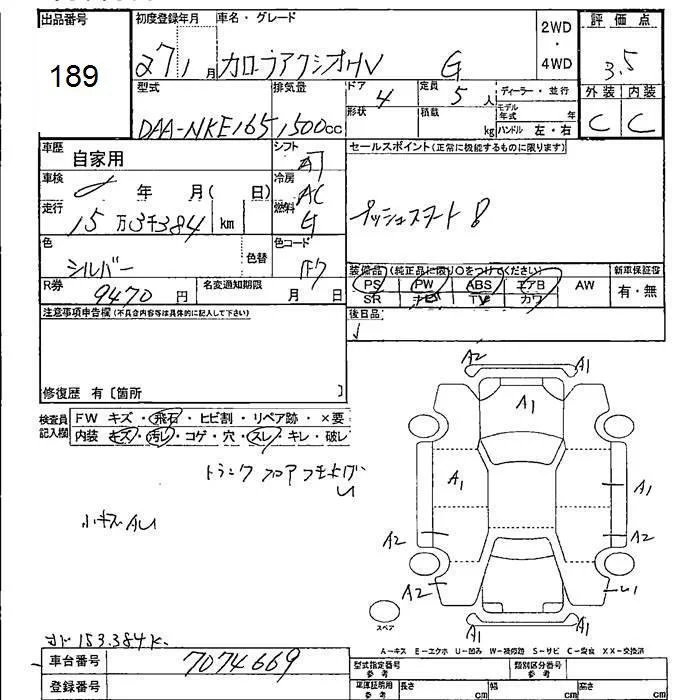 出品番号 初度登録年月 車名・グレード 2WD・4WD 評価点
189 27 1月 カローラアクシオHV G 3.5
型式 排気量 ドア 4 定員 5人 ディーラー・並行 外装 内装
DAA-NKE165 1,500cc 形状 積載 kg モデル年式 年 ハンドル 左・右 C C
車歴 自家用 シフト AT セールスポイント(正常に機能するものに限ります)
車検 年 月( 日) 冷房 AC
走行 15万3千384 km 燃料 G プッシュスタート
色 シルバー 色替 色コード 1F7
装備品(純正品に限り○をつけてください) 新車保証書
PS PW ABS エアB AW 有・無
SR ナビ TV カワ
R券 9470円 名変通知期限 月 日
注意事項申告欄(不具合内容等は具体的に記入して下さい) 後日品
修復歴 有〔箇所 〕
検査員記入欄 FW キズ・飛石・ヒビ割・リペア跡・×要
内装 キズ・汚レ・コゲ・穴・スレ・キレ・破レ
トランクフロア
小キズAU
A2 A1
A1
A1 A1
A2 A2
A2
スペア
A1 A1
A-キズ E-エクボ U-凹み W-補修跡 S-サビ C-腐食 XX-交換済
153.384K
車台番号 7074669
型式指定番号 参考 類別区分番号 参考
登録番号
参考 長さ cm 幅 cm 高さ cm